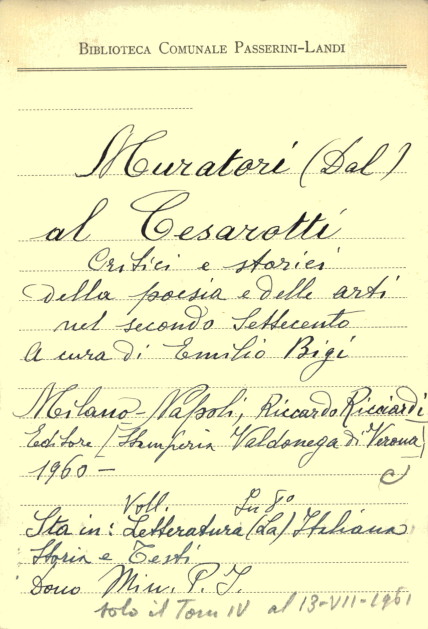 BIBLIOTECA COMUNALE PASSERINI-LANDI
Muratori (Dal)
al Cesarotti
Critici e storici
della poesia e delle arti
nel secondo Settecento
A cura di Emilio Bigi
Milano-Napoli, Riccardo Ricciardi
Editore [Stamperia Valdonega di Verona]
1960 -
Voll. In 8°
Sta in: Letteratura (La) Italiana
Storia e Testi
Dono Min. P. I.
solo il Tom IV al 13-VII-1961